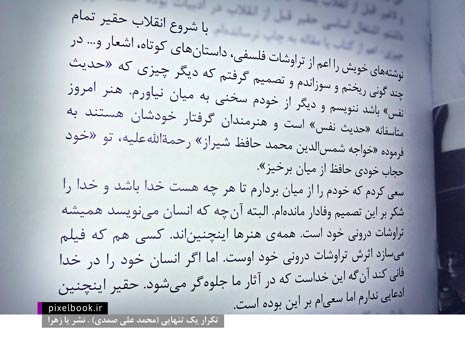 با شروع انقلاب حقیر تمام
نوشته‌های خویش را اعم از تراوشات فلسفی، داستان‌های کوتاه، اشعار و... در
چند گونی ریختم و سوزاندم و تصمیم گرفتم که دیگر چیزی که «حدیث
نفس» باشد ننویسم و دیگر از خودم سخنی به میان نیاورم. هنر امروز
متاسفانه «حدیث نفس» است و هنرمندان گرفتار خودشان هستند به
فرموده «خواجه شمس‌الدین محمد حافظ شیراز» رحمةالله‌علیه، تو «خود
حجاب خودی حافظ از میان برخیز».
سعی کردم که خودم را از میان بردارم تا هر چه هست خدا باشد و خدا را
شکر بر این تصمیم وفادار مانده‌ام. البته آن‌چه که انسان می‌نویسد همیشه
تراوشات درونی خود است. همه‌ی هنرها اینچنین‌اند. کسی هم که فیلم
می‌سازد اثرش تراوشات درونی خود اوست. اما اگر انسان خود را در خدا
فانی کند آن‌گه این خداست که در آثار ما جلوه‌گر می‌شود. حقیر اینچنین
ادعایی ندارم اما سعی‌ام بر این بوده است.
pixelbook.ir
تکرار یک تنهایی (محمد علی صمدی) . نشر یا زهرا